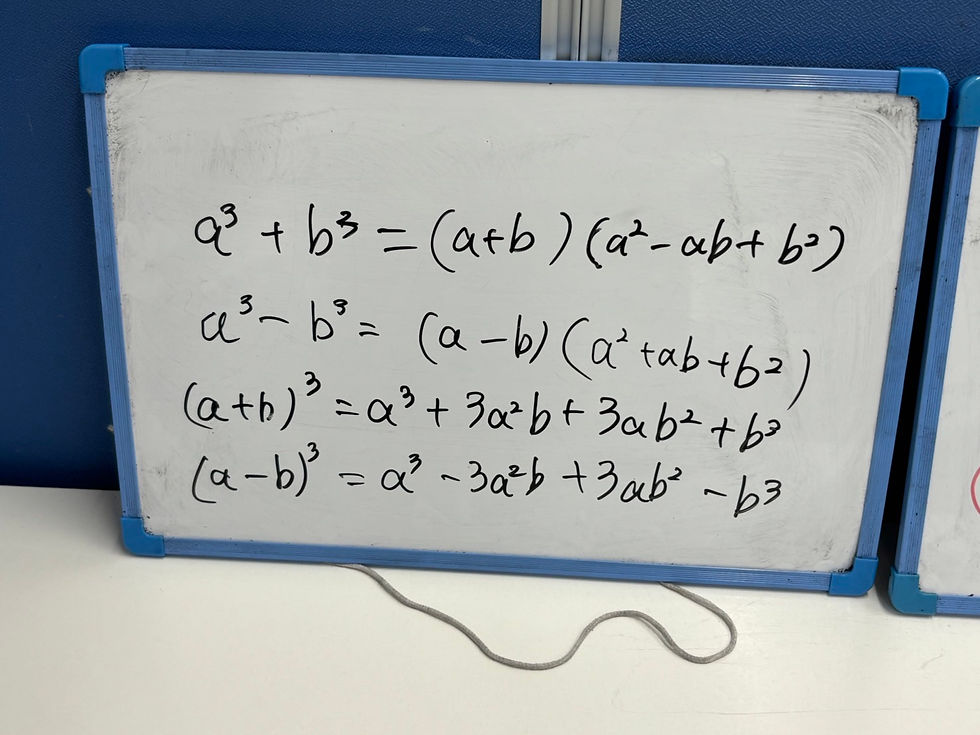 a³ + b³ = (a+b) (a² - ab + b²)
a³ - b³ = (a - b) (a² + ab + b²)
(a+b)³ = a³ + 3a²b + 3ab² + b³
(a-b)³ = a³ - 3a²b + 3ab² - b³